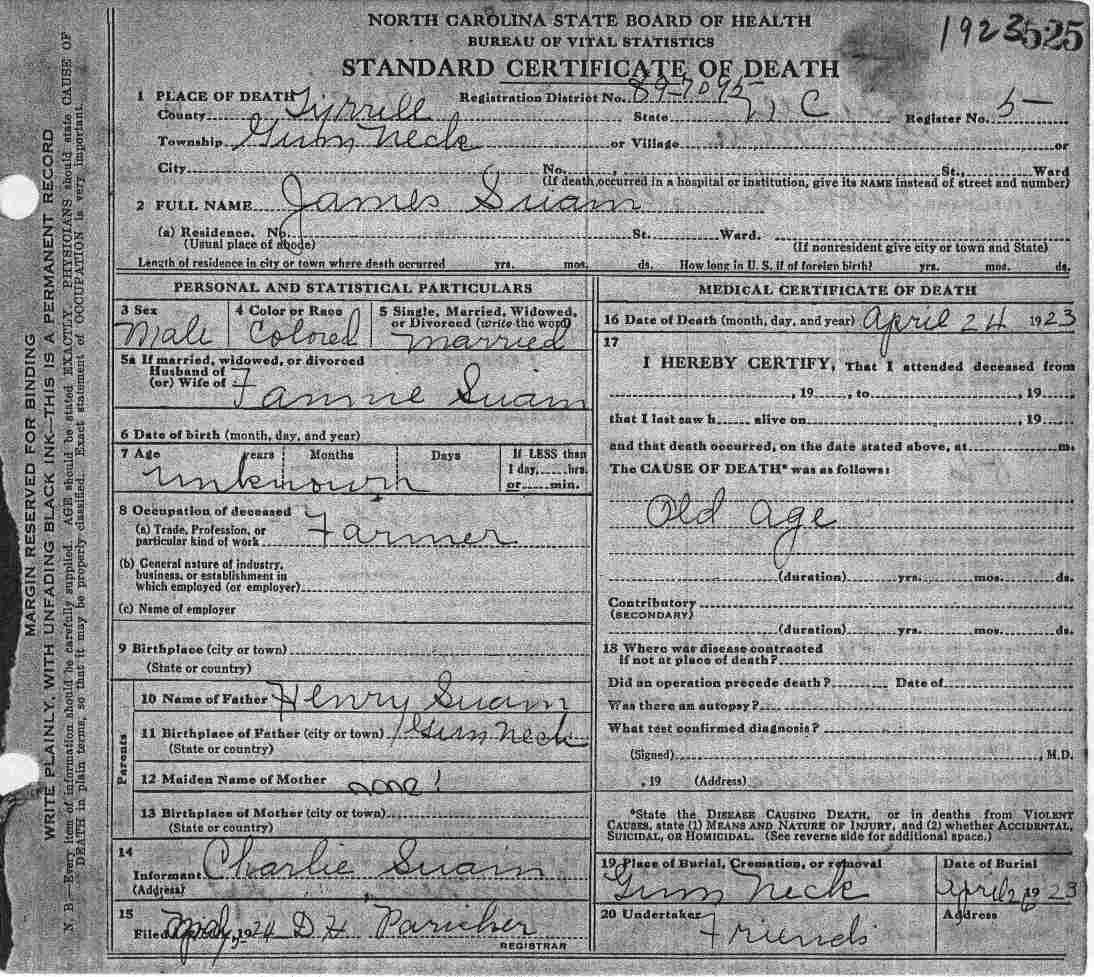 NORTH CAROLINA STATE BOARD OF HEALTH
BUREAU OF VITAL STATISTICS
1923 525
STANDARD CERTIFICATE OF DEATH
1 PLACE OF DEATH Registration District No. 89-7095
County Tyrrell State N C Register No. 5-
Township Gum Neck or Village or
City No. , St., Ward
(If death occurred in a hospital or institution, give its NAME instead of street and number)
2 FULL NAME James Suam
(a) Residence. No. St. Ward.
(Usual place of abode) (If nonresident give city or town and State)
Length of residence in city or town where death occurred yrs. mos. ds. How long in U. S. if of foreign birth? yrs. mos. ds.
PERSONAL AND STATISTICAL PARTICULARS
3 Sex 4 Color or Race 5 Single, Married, Widowed,
or Divorced (write the word)
Male Colored Married
5a If married, widowed, or divorced
Husband of
(or) Wife of Fannie Suam
6 Date of birth (month, day, and year)
7 Age years Months Days If LESS than
1 day, hrs.
or min.
unknown
8 Occupation of deceased
(a) Trade, Profession, or
particular kind of work Farmer
(b) General nature of industry,
business, or establishment in
which employed (or employer)
(c) Name of employer
9 Birthplace (city or town)
(State or country)
Parents
10 Name of Father Henry Suam
11 Birthplace of Father (city or town) Gum Neck
(State or country)
12 Maiden Name of Mother
13 Birthplace of Mother (city or town)
(State or country)
14
Informant Charlie Suam
(Address)
15
Filed , 1924 D H
REGISTRAR
MEDICAL CERTIFICATE OF DEATH
16 Date of Death (month, day, and year) April 24 1923
17
I HEREBY CERTIFY, That I attended deceased from
, 19 , to , 19
that I last saw h alive on , 19
and that death occurred, on the date stated above, at m.
The CAUSE OF DEATH* was as follows:
Old age
(duration) yrs. mos. ds.
Contributory
(SECONDARY)
(duration) yrs. mos. ds.
18 Where was disease contracted
if not at place of death?
Did an operation precede death? Date of
Was there an autopsy?
What test confirmed diagnosis?
(Signed) , M.D.
, 19 (Address)
*State the DISEASE CAUSING DEATH, or in deaths from VIOLENT
CAUSES, state (1) MEANS AND NATURE OF INJURY, and (2) whether ACCIDENTAL,
SUICIDAL, OR HOMICIDAL. (See reverse side for additional space.)
19 Place of Burial, Cremation, or removal Date of Burial
Gum Neck April 26 1923
20 Undertaker Address
Friends
MARGIN RESERVED FOR BINDING
WRITE PLAINLY, WITH UNFADING BLACK INK—THIS IS A PERMANENT RECORD
N. B. Every item of information should be carefully supplied. AGE should be stated EXACTLY. PHYSICIANS should state CAUSE OF
DEATH in plain terms, so that it may be properly classified. Exact statement of OCCUPATION is very important.